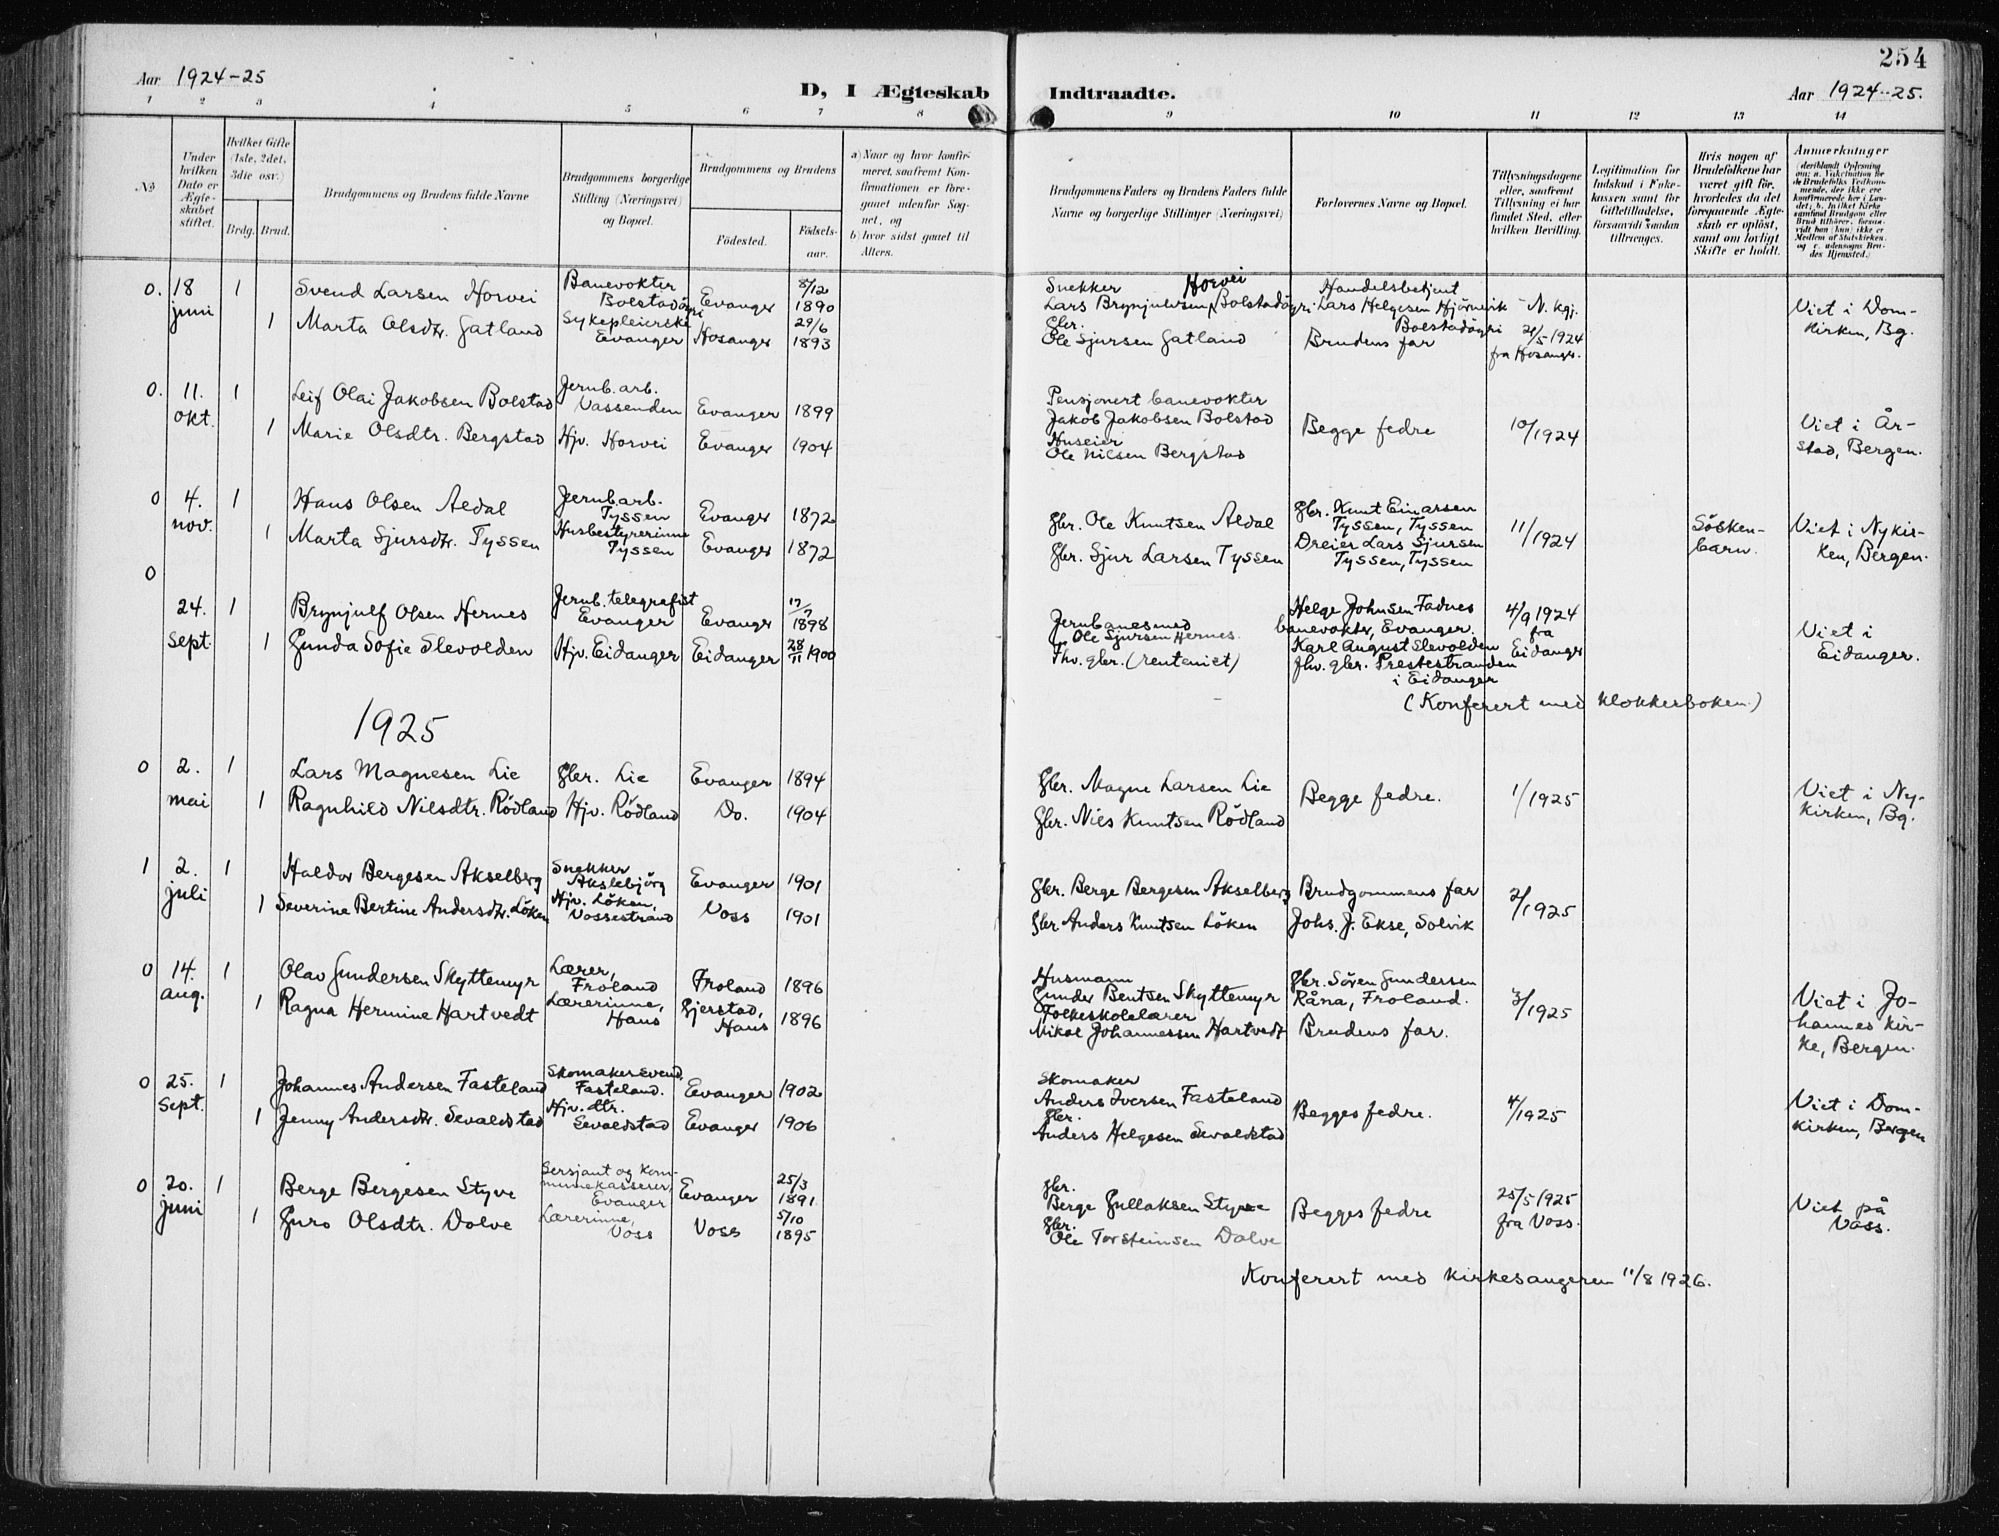 254
Aar 1924-25
D, I Ægteskab Indtraadte.
Aar 1924-25.
1 2 3 4 5 6 7 8 9 10 11 12 13 14
No
Under hvilken Dato er Ægteskabet stiftet.
Hvilket Gifte (1ste, 2det, 3die osv.)
Brdg. Brud.
Brudgommens og Brudens fulde Navne
Brudgommens borgerlige Stilling (Næringsvei) og Bopæl.
Brudgommens og Brudens
Fødested.
Fødselsaar.
a) Naar og hvor konfirmeret, saafremt Konfirmationen er foregaaet udenfor Sognet, og
b) hvor sidst gaaet til Alters.
Brudgommens Faders og Brudens Faders fulde Navne og borgerlige Stillinger (Næringsvei)
Forlovernes Navne og Bopæl.
Tillysningsdagene eller, saafremt Tillysning ei har fundet Sted, efter hvilken Bevilling.
Legitimation for Indskud i Enkekassen samt for Giftetilladelse, forsaavidt saadan tiltrænges.
Hvis nogen af Brudefolkene har været gift før, hvorledes da det foregaaende Ægteskab er opløst, samt om lovligt Skifte er holdt.
Anmærkninger
(deriblandt Oplysning om: a. Vakcination for de Brudefolks Vedkommende, der ikke ere konfirmerede her i Landet; b. hvilket Kirkesamfund Brudgom eller Brud tilhører, forsaavidt han (hun) ikke er Medlem af Statskirken, og c. udensogns Brudes Hjemsted.)
0. 18 juni 1 Svend Larsen Horvei Banevokter Bolstadöyri Evanger 8/12 1890
Snekker Lars Brynjulvsen Horvei, Bolstadöyri
Handelsbetjent Lars Helgesen Hjörnevik Bolstadöyri
N. kgj. 21/5 1924 fra Hosanger.
Viet i Domkirken, Bg.
1 Marta Olsdtr. Gatland Sykepleierske Evanger Hosanger 29/6 1893
Gbr. Ole Sjursen Gatland Brudens far
0. 11. okt. 1 Leif Olai Jakobsen Bolstad Jernb. arb. Vassenden Evanger 1899
Pensjonert banevokter Jakob Jakobsen Bolstad
Begge fedre 10/1924
Viet i Årstad, Bergen.
1 Marie Olsdtr. Bergstad Hjv. Horvei Evanger 1904
Huseier Ole Nilsen Bergstad
0 4. nov. 1 Hans Olsen Aldal Jernb. arb. Tyssen Evanger 1872
Gbr. Ole Knutsen Aldal
Gbr. Knut Einarsen Tyssen, Tyssen
11/1924
Söskenbarn.
Viet i Nykirken, Bergen.
1 Marta Sjursdtr. Tyssen Husbestyrerinne Tyssen Evanger 1872
Gbr. Sjur Larsen Tyssen
Dreier Lars Sjursen Tyssen, Tyssen
0 24. sept. 1 Brynjulf Olsen Hernes Jernb. telegrafist Evanger Evanger 17/7 1898
Jernbanesmed Ole Sjursen Hernes.
Helge Johnsen Fadnes banevokter, Evanger.
4/9 1924 fra Eidanger
Viet i Eidanger.
1 Gunda Sofie Slevolden Hjv. Eidanger Eidanger 28/11 1900
Fhv. gbr. (renteniet)
Karl August Slevolden fhv. gbr. Prestestranden i Eidanger
(Konferert med klokkerboken.)
1925
0 2. mai 1 Lars Magnesen Lie Gbr. Lie Evanger 1894
Gbr. Magne Larsen Lie
Begge fedre. 1/1925
Viet i Nykirken, Bg.
1 Ragnhild Nilsdtr. Rödland Hjv. Rödland Do. 1904
Gbr. Nils Knutsen Rödland
1 2. juli 1 Haldor Bergesen Akselberg Snekker Akslebjörg Evanger 1901
Gbr. Berge Bergesen Akselberg Brudgommens far 2/1925
1 Severine Bertine Andersdtr. Löken Hjv. Löken, Vossestrand Voss 1901
Gbr Anders Knutsen Löken Johs. J. Ekse, Solvik
0 14. aug. 1 Olav Gundersen Skyttemyr Lærer, Froland Froland 1896
Husmann Gunder Bentsen Skyttemyr
Gbr. Sören Gundersen Råna, Froland.
3/1925
Viet i Johanneskirke, Bergen.
1 Ragna Hermine Hartvedt Lærerinne, Hans Gjerstad, Hans 1896
Folkeskolelærer Mikal Johannessen Hartvedt Brudens far.
0 25. sept. 1 Johannes Andersen Fasteland Skomakersvend, Fasteland. Evanger 1902
Skomaker Anders Iversen Fasteland
Begges fedre. 4/1925
Viet i Domkirken, Bergen
1 Jenny Andersdtr. Sevaldstad Hjv. dtr. Sevaldstad Evanger 1906
Gbr. Anders Helgesen Sevaldstad
0 20. juni 1 Berge Bergesen Styve Sersjant og kommunekasserer, Evanger Evanger 25/3 1891
Gbr. Berge Gullaksen Styve
Begges fedre
25/5 1925 fra Voss.
Viet på Voss.
1 Guro Olsdtr. Dolve Lærerinne, Voss Voss 5/10 1895
Gbr. Ole Torsteinsen Dolve
Konferert med kirkesangeren 11/8 1926.